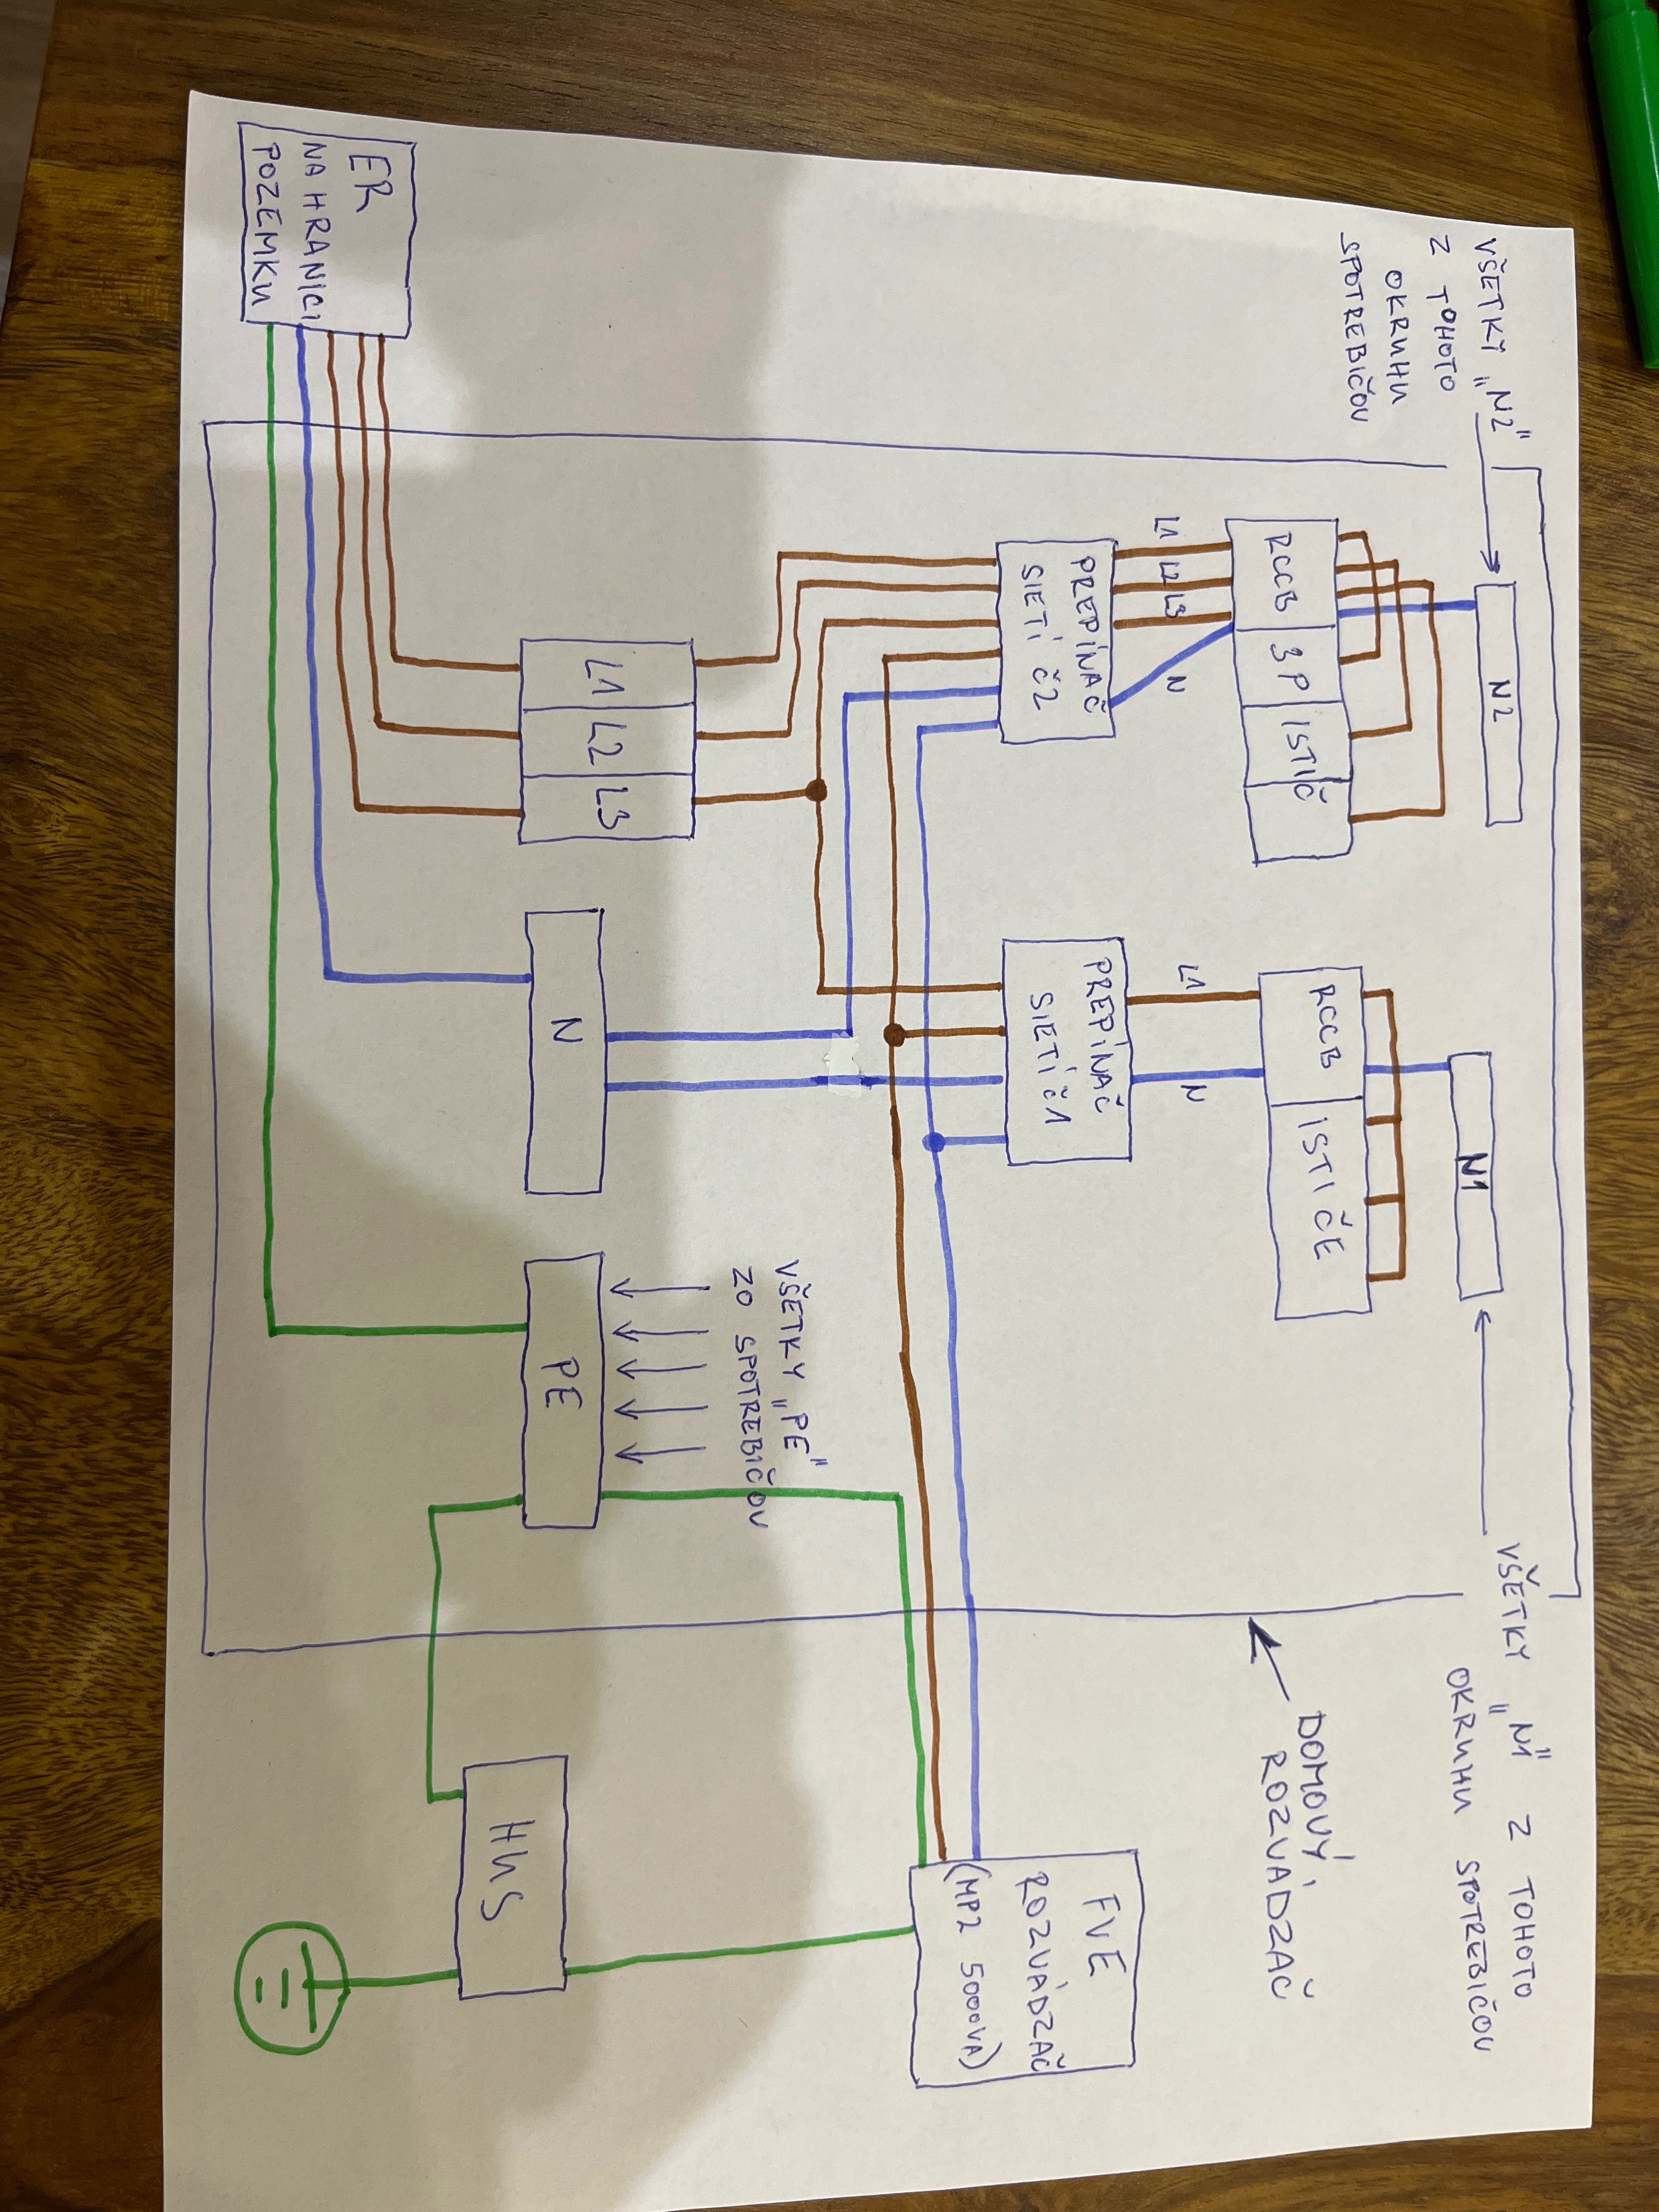 VŠETKY „N2"
Z TOHOTO
OKRUHU
SPOTREBIČOV
N2
N1
VŠETKY „N1" Z TOHOTO
OKRUHU SPOTREBIČOV
RCCB
3P
ISTIČ
RCCB
ISTIČE
L1
L2
L3
N
L1
N
PREPÍNAČ
SIETÍ Č2
PREPÍNAČ
SIETÍ Č1
DOMOVÝ
ROZVÁDZAČ
FVE
ROZVÁDZAČ
(MP2 5000VA)
VŠETKY „PE"
ZO SPOTREBIČOV
L1
L2
L3
N
PE
HUS
ER
NA HRANICI
POZEMKU